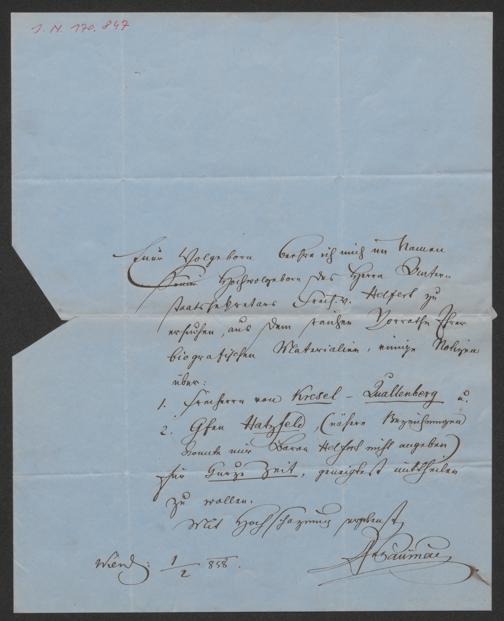 I. N. 170.847
Euer Wolgeborn beehre ich mich im Namen
Seiner Hochwolgeborn des Herrn Unter-
staatssekretärs Freih. v. Helfert zu
ersuchen, aus dem reichen Vorrathe Ihrer
biografischen Materialien, einige Notizen
über:
1. Freiherrn von Kresel - Quallenberg u.
2. Gfen Hatzfeld (nähere Bezeichnungen
konnte mir Baron Helfert nicht angeben)
für kurze Zeit, geneigtest mittheilen
zu wollen.
Mit Hochschäzung ergebenst
Wien, 1/2 858.